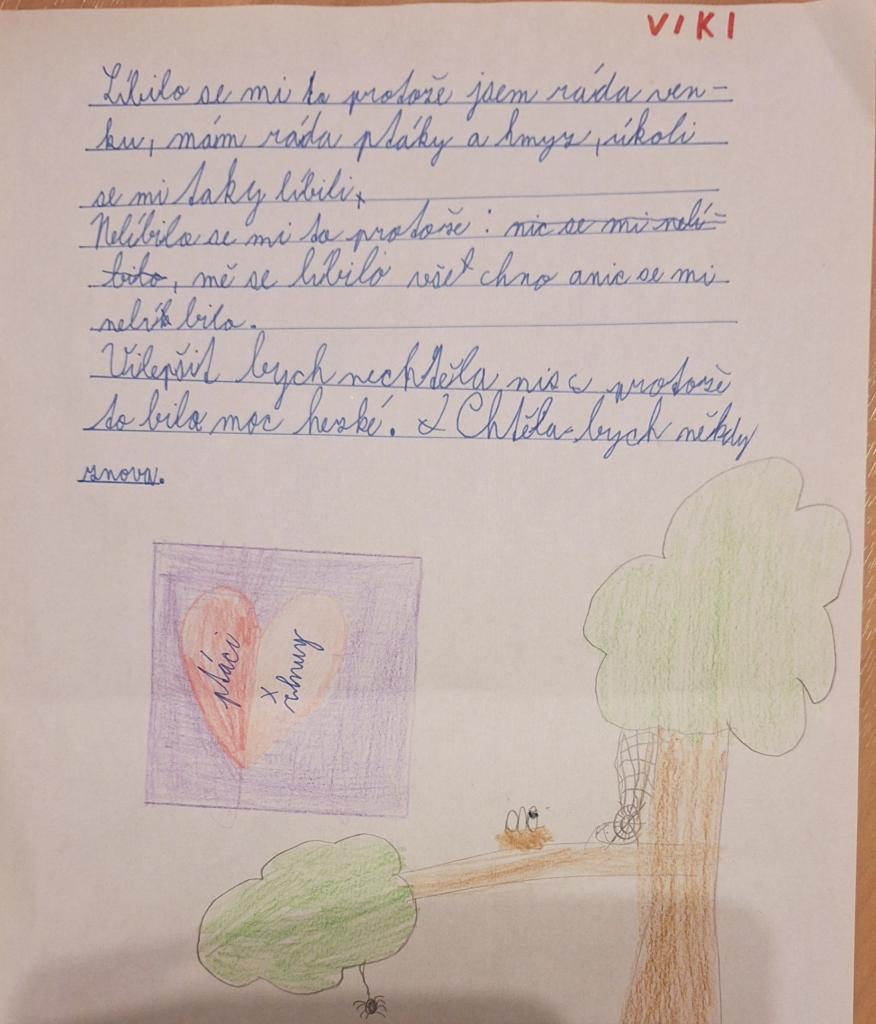 VIKI
Líbilo se mi to protože jsem ráda ven-
ku, mám ráda ptáky a hmyz, úkoli
se mi taky líbili
Nelíbilo se mi to protože: nic se mi nelí-
bilo, mě se líbilo všet chno anic se mi
nelí bilo.
Vilepšit bych nechtěla nic protože
to bilo moc heské. Chtěla bych někdy
znova.
ptáci
x